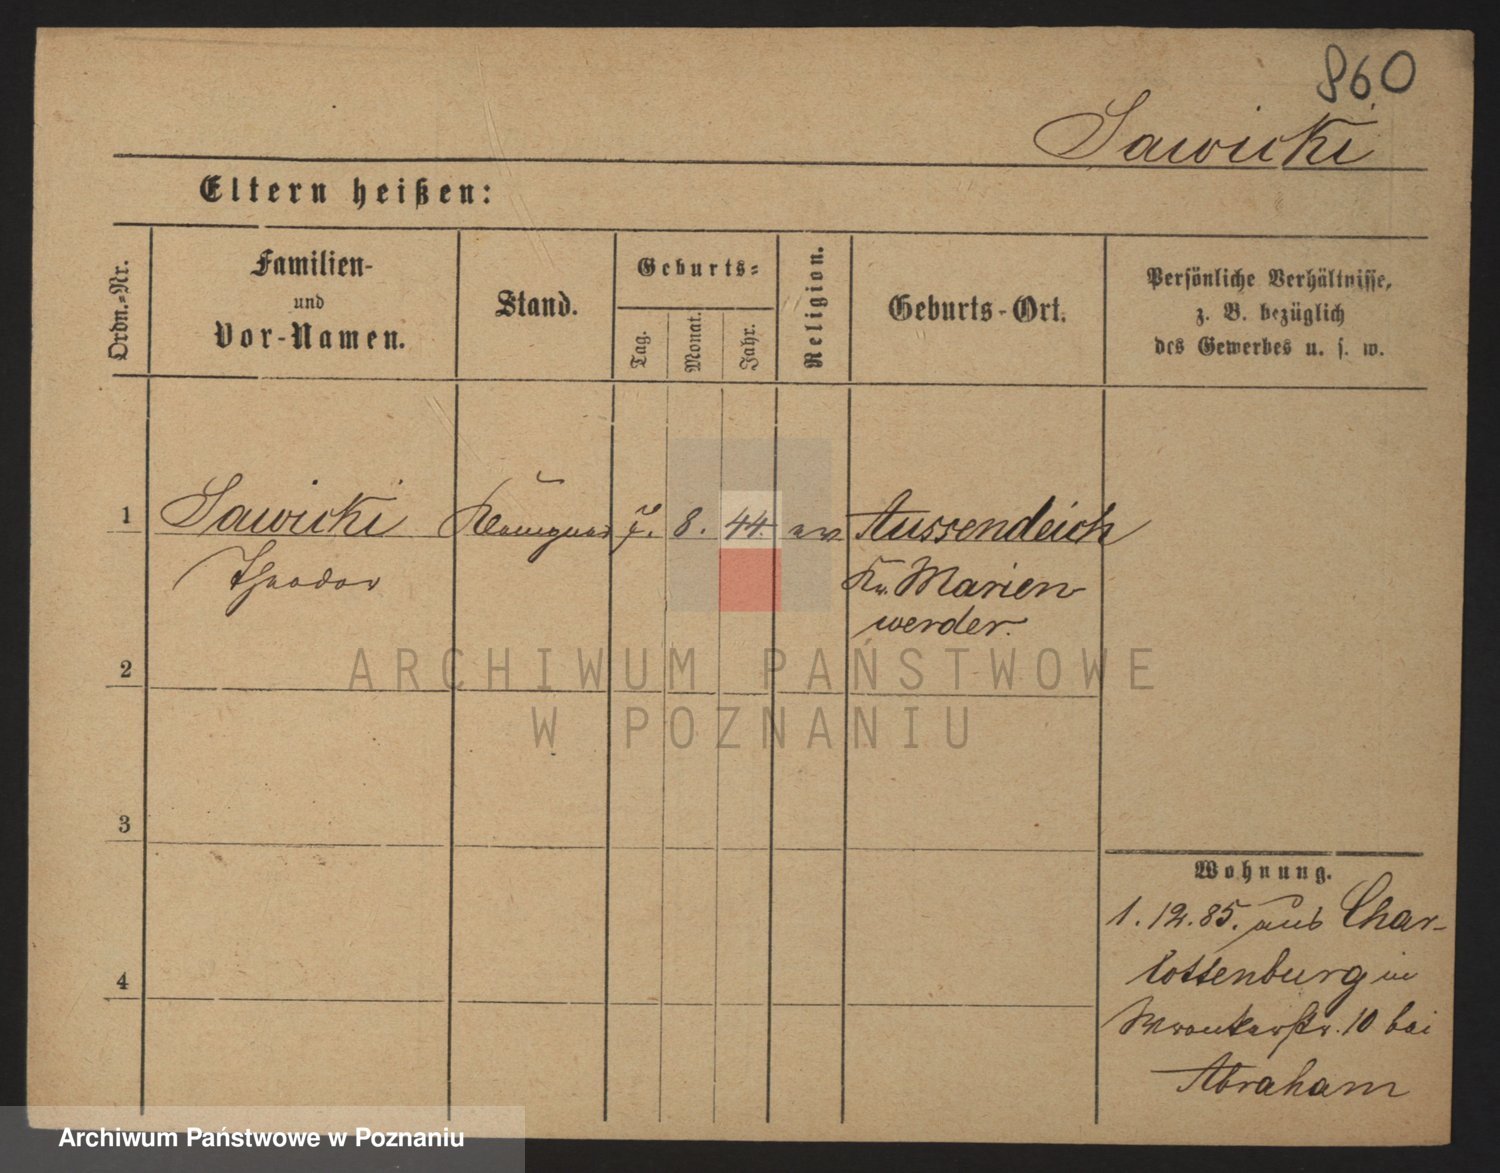 860
Sawicki
Eltern heißen:
Ordn.-Nr.
Familien-
und
Vor-Namen.
Stand.
Geburts-
Tag.
Monat.
Jahr.
Religion.
Geburts-Ort.
Persönliche Verhältnisse,
z. B. bezüglich
des Gewerbes u. s. w.
1
Sawicki
7. 8. 44. ev Aussendeich
Theodor
Kr. Marien
werder.
2
ARCHIWUM PAŃSTWOWE
W POZNANIU
3
Wohnung.
1. 12. 85. aus Char-
lottenburg in
4
Wronkerstr. 10 bei
Abraham
Archiwum Państwowe w Poznaniu